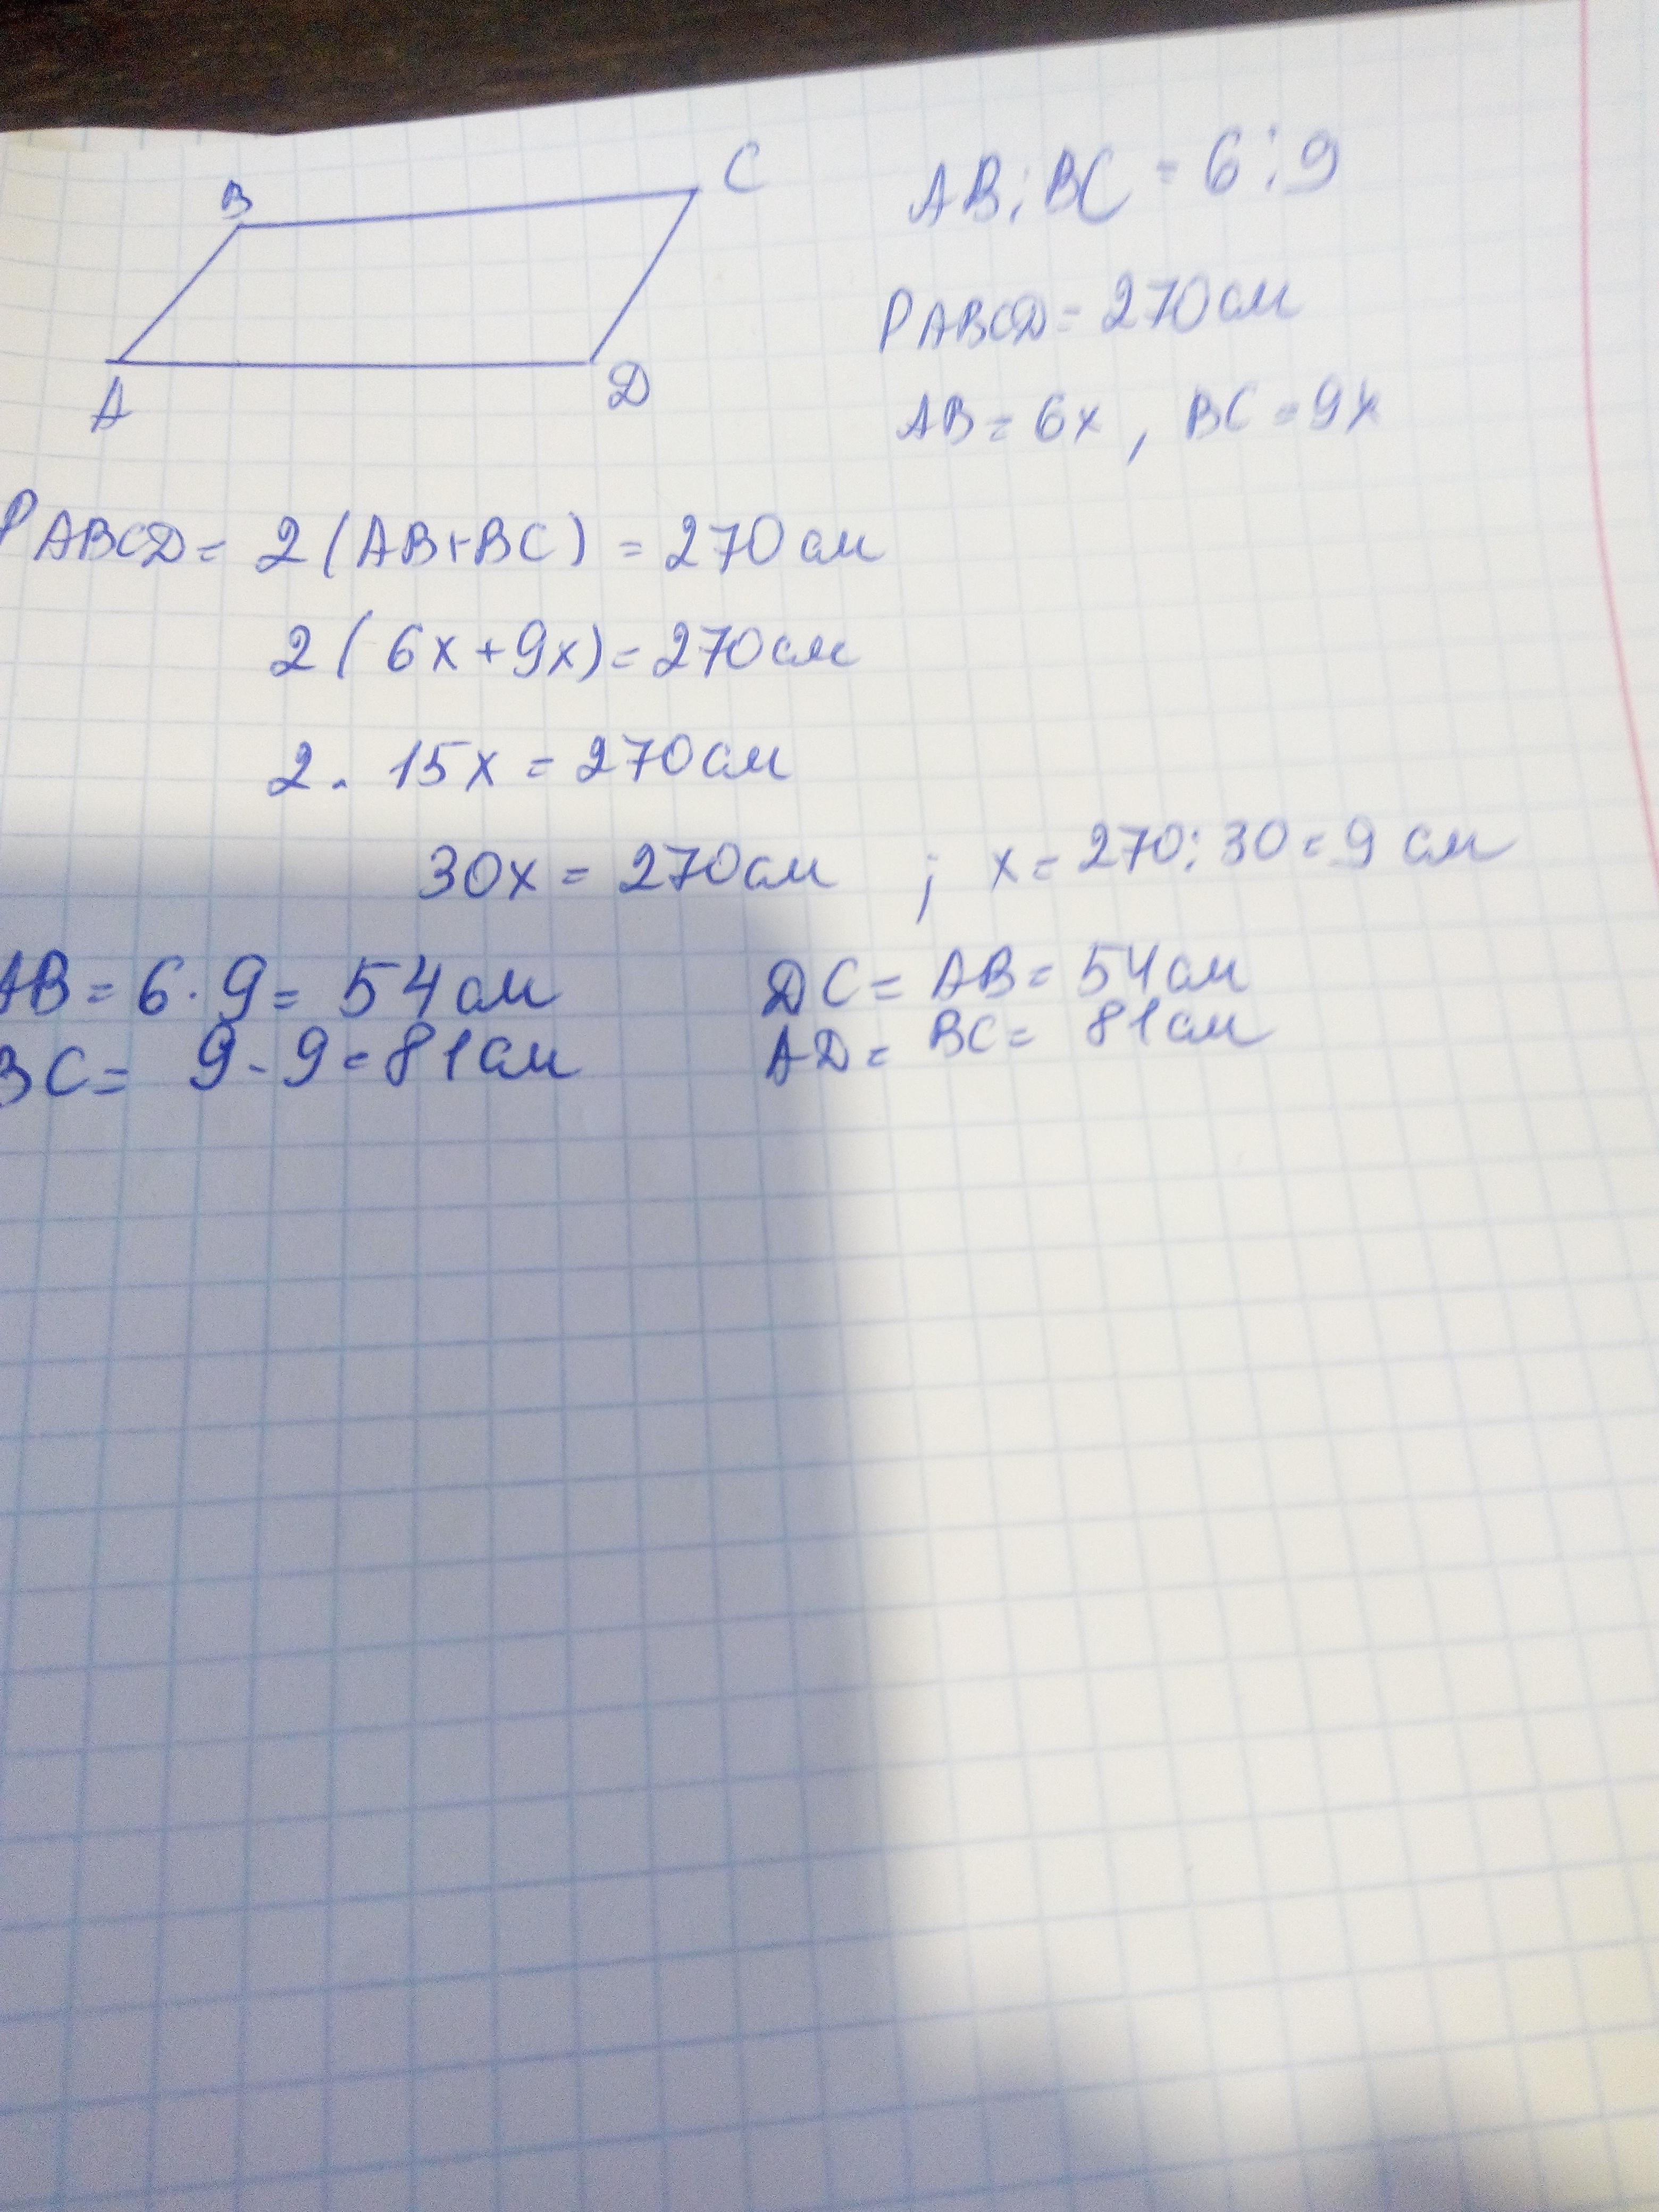 B C AB:BC = 6:9
P ABCD = 270 см
A D AB = 6x, BC = 9x
P ABCD = 2(AB+BC) = 270 см
2(6x+9x) = 270 см
2. 15x = 270 см
30x = 270 см ; x = 270:30 = 9 см
AB = 6·9 = 54 см DC = AB = 54 см
BC = 9-9 = 81 см AD = BC = 81 см